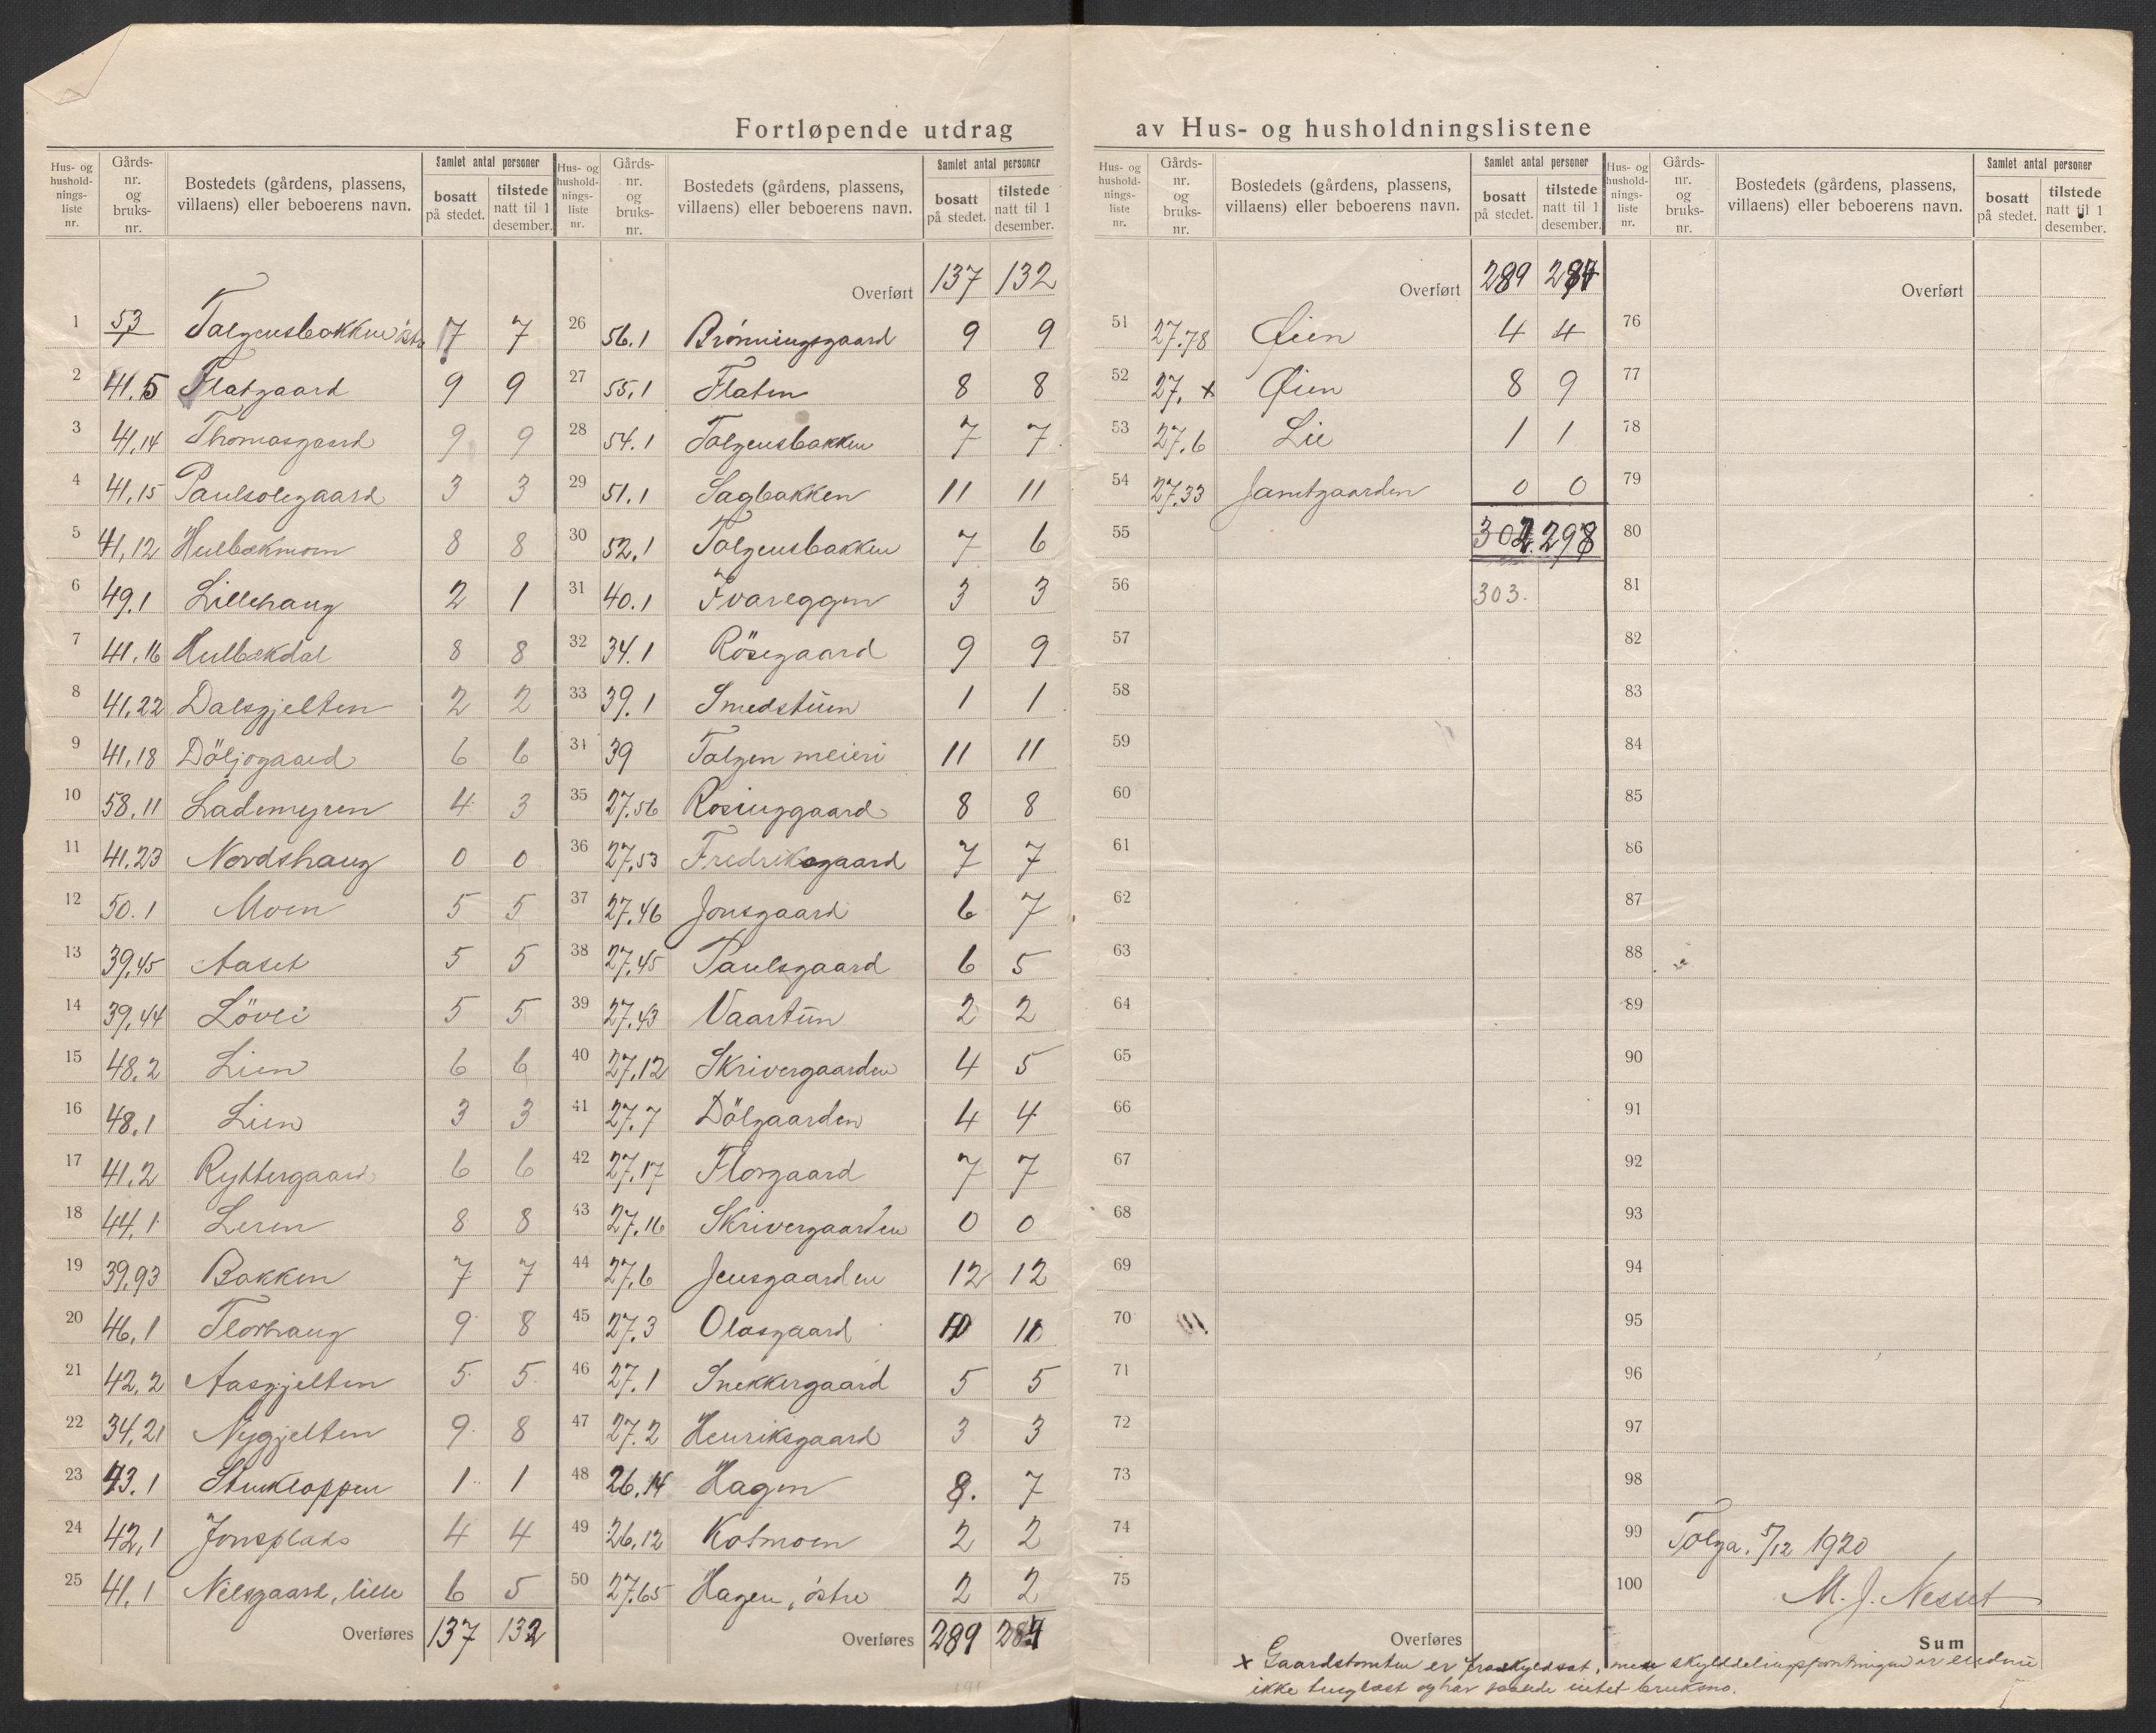 Fortløpende utdrag av Hus- og husholdningslistene
Hus- og hushold-nings-liste nr. Gårds-nr. og bruks-nr. Bostedets (gårdens, plassens, villaens) eller beboerens navn. Samlet antal personer bosatt på stedet. tilstede natt til 1 desember.
1 53 Tolgensbakken østre 7 7
2 41.5 Flatgaard 9 9
3 41,14 Thomasgaard 9 9
4 41,15 Paulsolegaard 3 3
5 41,12 Hulbækmoen 8 8
6 49.1 Lillehaug 2 1
7 41.16 Hulbækdal 8 8
8 41,22 Dalsgjelten 2 2
9 41,18 Döljogaard 6 6
10 58,11 Lademyren 4 3
11 41.23 Nordshaug 0 0
12 50.1 Moen 5 5
13 39,45 Aaset 5 5
14 39,44 Lövli 5 5
15 48.2 Lien 6 6
16 48.1 Lien 3 3
17 41.2 Ryttergaard 6 6
18 44,1 Leren 8 8
19 39,93 Bakken 7 7
20 46,1 Florhaug 9 8
21 42,2 Aasgjelten 5 5
22 34,21 Nygjelten 9 8
23 43.1 1 1
24 42,1 Jonsplads 4 4
25 41,1 Nelsgaard, lille 6 5
Overføres 137 132
Hus- og hushold-nings-liste nr. Gårds-nr. og bruks-nr. Bostedets (gårdens, plassens, villaens) eller beboerens navn. Samlet antal personer bosatt på stedet. tilstede natt til 1 desember.
Overført 137 132
26 56.1 Brönningsgaard 9 9
27 55,1 Flaten 8 8
28 54.1 Tolgensbakken 7 7
29 51.1 Sagbakken 11 11
30 52,1 Tolgensbakken 7 6
31 40.1 Ivareggen 3 3
32 34.1 Rösegaard 9 9
33 39.1 Smedstuen 1 1
34 39 Tolgen meieri 11 11
35 27.56 Rosinggaard 8 8
36 27,53 Fredriksgaard 7 7
37 27,46 Jonsgaard 6 7
38 27.45 Paulsgaard 6 5
39 27.43 Vaartun 2 2
40 27,12 Skrivergaarden 4 5
41 27.7 Dölgaarden 4 4
42 27.17 Florgaard 7 7
43 27,16 Skrivergaarden 0 0
44 27,6 Jensgaarden 12 12
45 27.3 Olasgaard 10 10
46 27.1 Snekkergaard 5 5
47 27.2 Henriksgaard 3 3
48 26.14 Hagen 8. 7
49 26,12 Kotmoen 2 2
50 27.65 Hagen, østre 2 2
Overføres 289 284
Hus- og hushold-nings-liste nr. Gårds-nr. og bruks-nr. Bostedets (gårdens, plassens, villaens) eller beboerens navn. Samlet antal personer bosatt på stedet. tilstede natt til 1 desember.
Overført 289 284
51 27.78 Øien 4 4
52 27. x Øien 8 9
53 27.6 Lie 1 1
54 27.33 Jamtgaarden 0 0
55 302 298
56 303.
57
58
59
60
61
62
63
64
65
66
67
68
69
70
71
72
73
74
75
Overføres
Hus- og hushold-nings-liste nr. Gårds-nr. og bruks-nr. Bostedets (gårdens, plassens, villaens) eller beboerens navn. Samlet antal personer bosatt på stedet. tilstede natt til 1 desember.
Overført
76
77
78
79
80
81
82
83
84
85
86
87
88
89
90
91
92
93
94
95
96
97
98
99 Tolga. 5/12 1920
100 M. J. Nesset
Sum
x Gaardstomten er fraskyldsat, men skylddelingsforretningen er endnu
ikke tinglæst og har saalede intet bruksno.